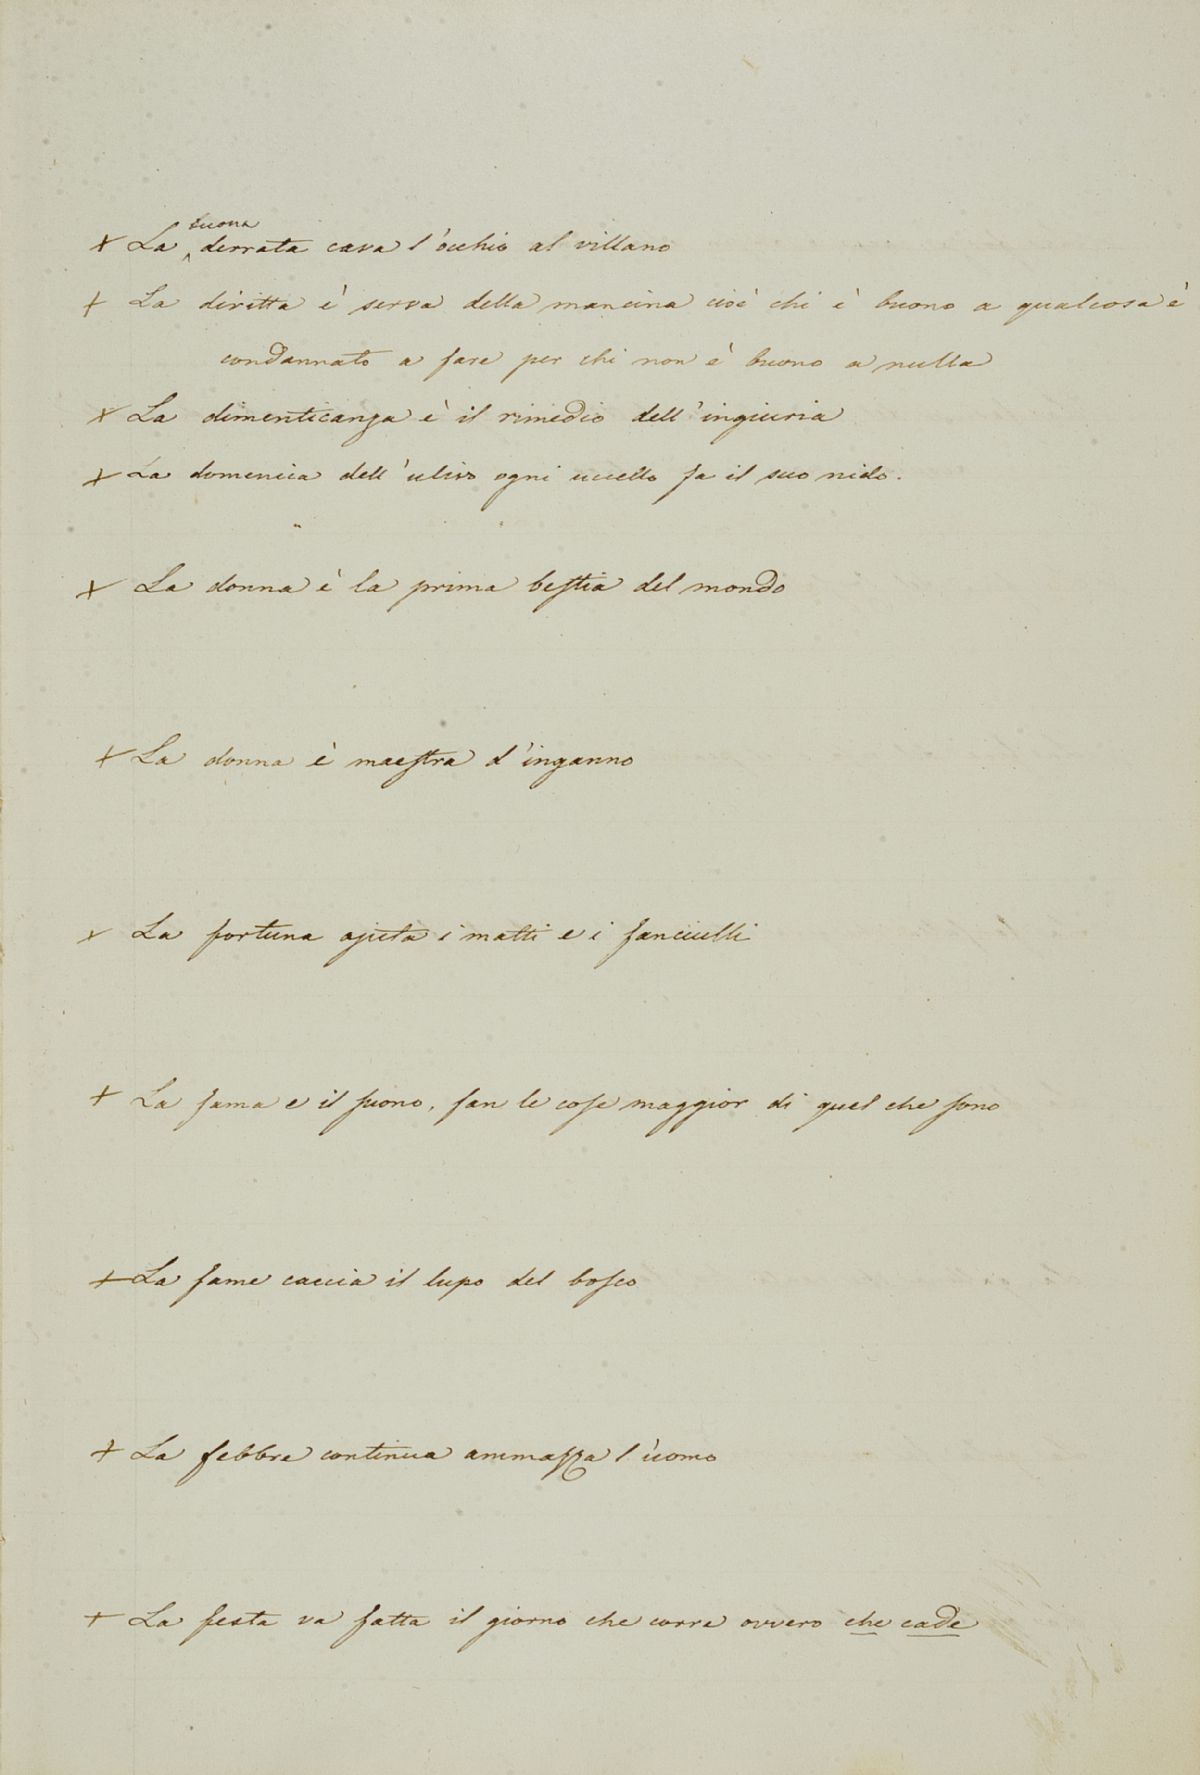 + La buona derrata cava l'occhio al villano
+ La diritta è serva della mancina cioè chi è buono a qualcosa è
condannato a fare per chi non è buono a nulla
+ La dimenticanza è il rimedio dell'ingiuria
+ La domenica dell'ulivo ogni uccello fa il suo nido.
+ La donna è la prima bestia del mondo
+ La donna è maestra d'inganno
+ La fortuna ajuta i matti e i fanciulli
+ La fama e il suono, fan le cose maggior di quel che sono
+ La fame caccia il lupo del bosco
+ La febbre continua ammazza l'uomo
+ La festa va fatta il giorno che corre ovvero che cade